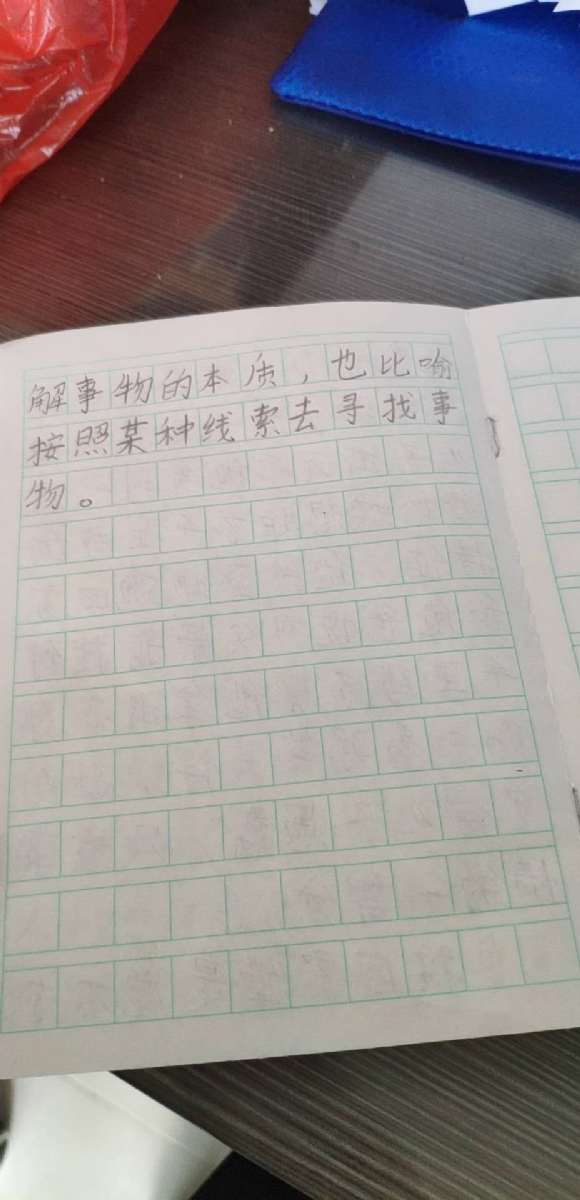 解事物的本质，也比喻
按照某种线索去寻找事
物。